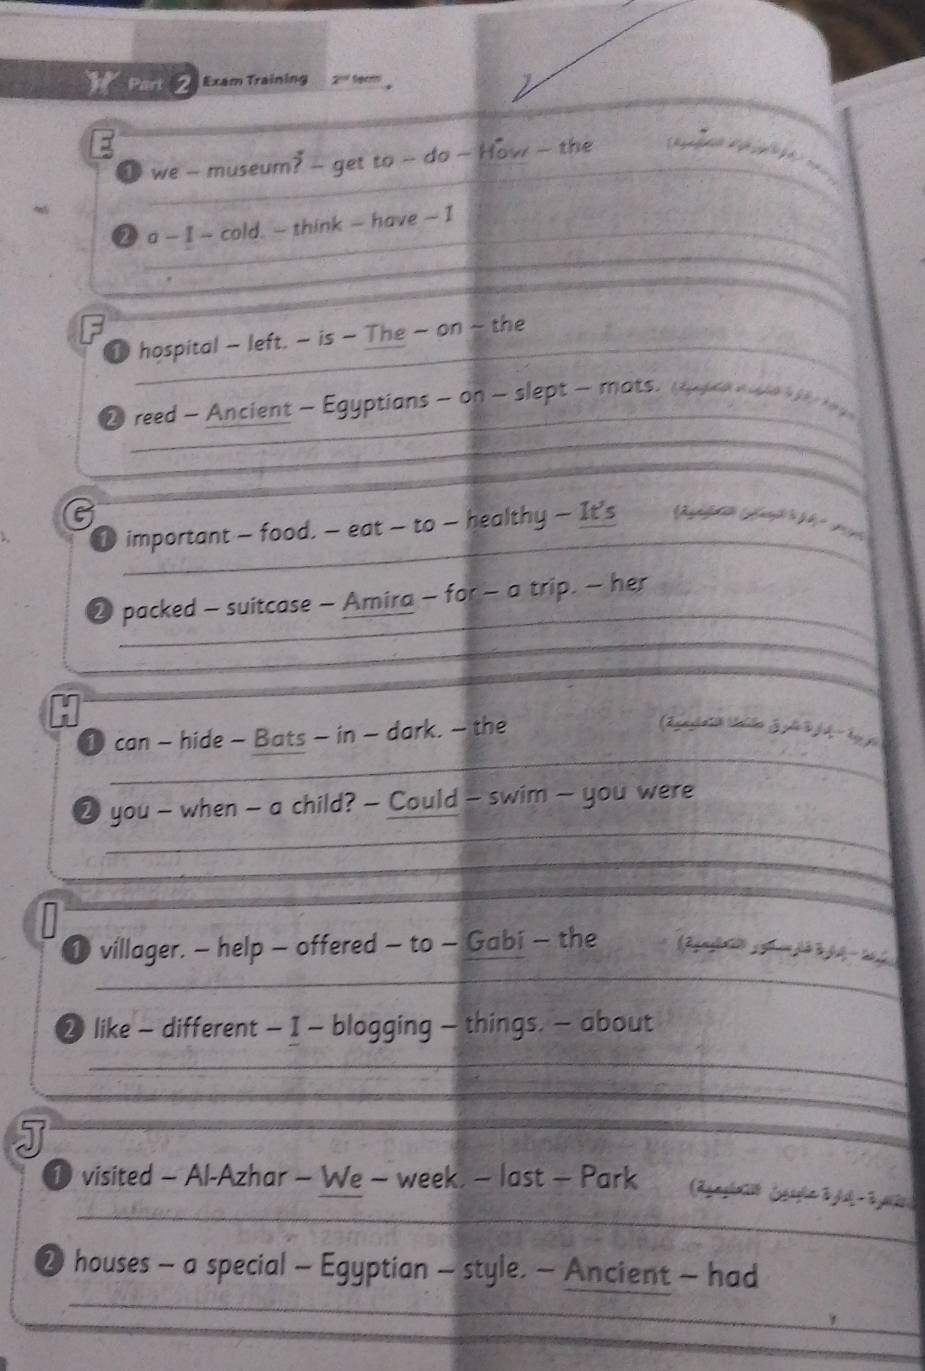 Part 2 Exam Training 2nd term
E
1 we – museum? – get to – do – How – the
2 a – I – cold. – think – have – I
F
1 hospital – left. – is – The – on – the
2 reed – Ancient – Egyptians – on – slept – mats.
G
1 important – food. – eat – to – healthy – It's
2 packed – suitcase – Amira – for – a trip. – her
H
1 can – hide – Bats – in – dark. – the
2 you – when – a child? – Could – swim – you were
I
1 villager. – help – offered – to – Gabi – the
2 like – different – I – blogging – things. – about
J
1 visited – Al-Azhar – We – week. – last – Park
2 houses – a special – Egyptian – style. – Ancient – had